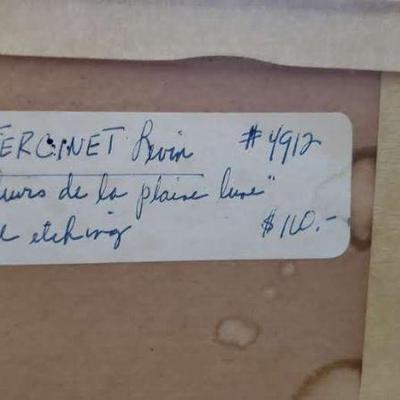 ERCINET Levin #4912
eurs de la plaine lune"
e etching $110.-